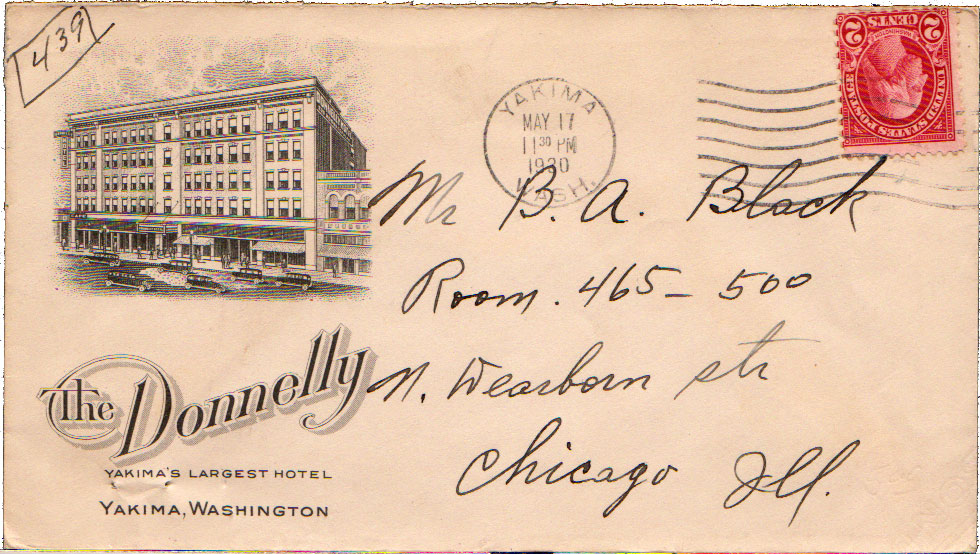 439
YAKIMA
MAY 17
11 30 PM
1930
WASH.
2 CENTS 2
WASHINGTON
UNITED STATES POSTAGE
Mr B. A. Black
Room. 465- 500
N. Dearborn str
Chicago Ill.
The Donnelly
YAKIMA'S LARGEST HOTEL
YAKIMA, WASHINGTON